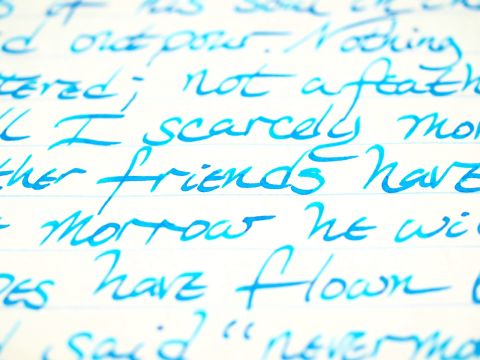 of his soul in
outpour. Nothing
tered; not a feath
ll I scarcely mor
ther friends have
morrow he wi
pes have flown
said "nevermo